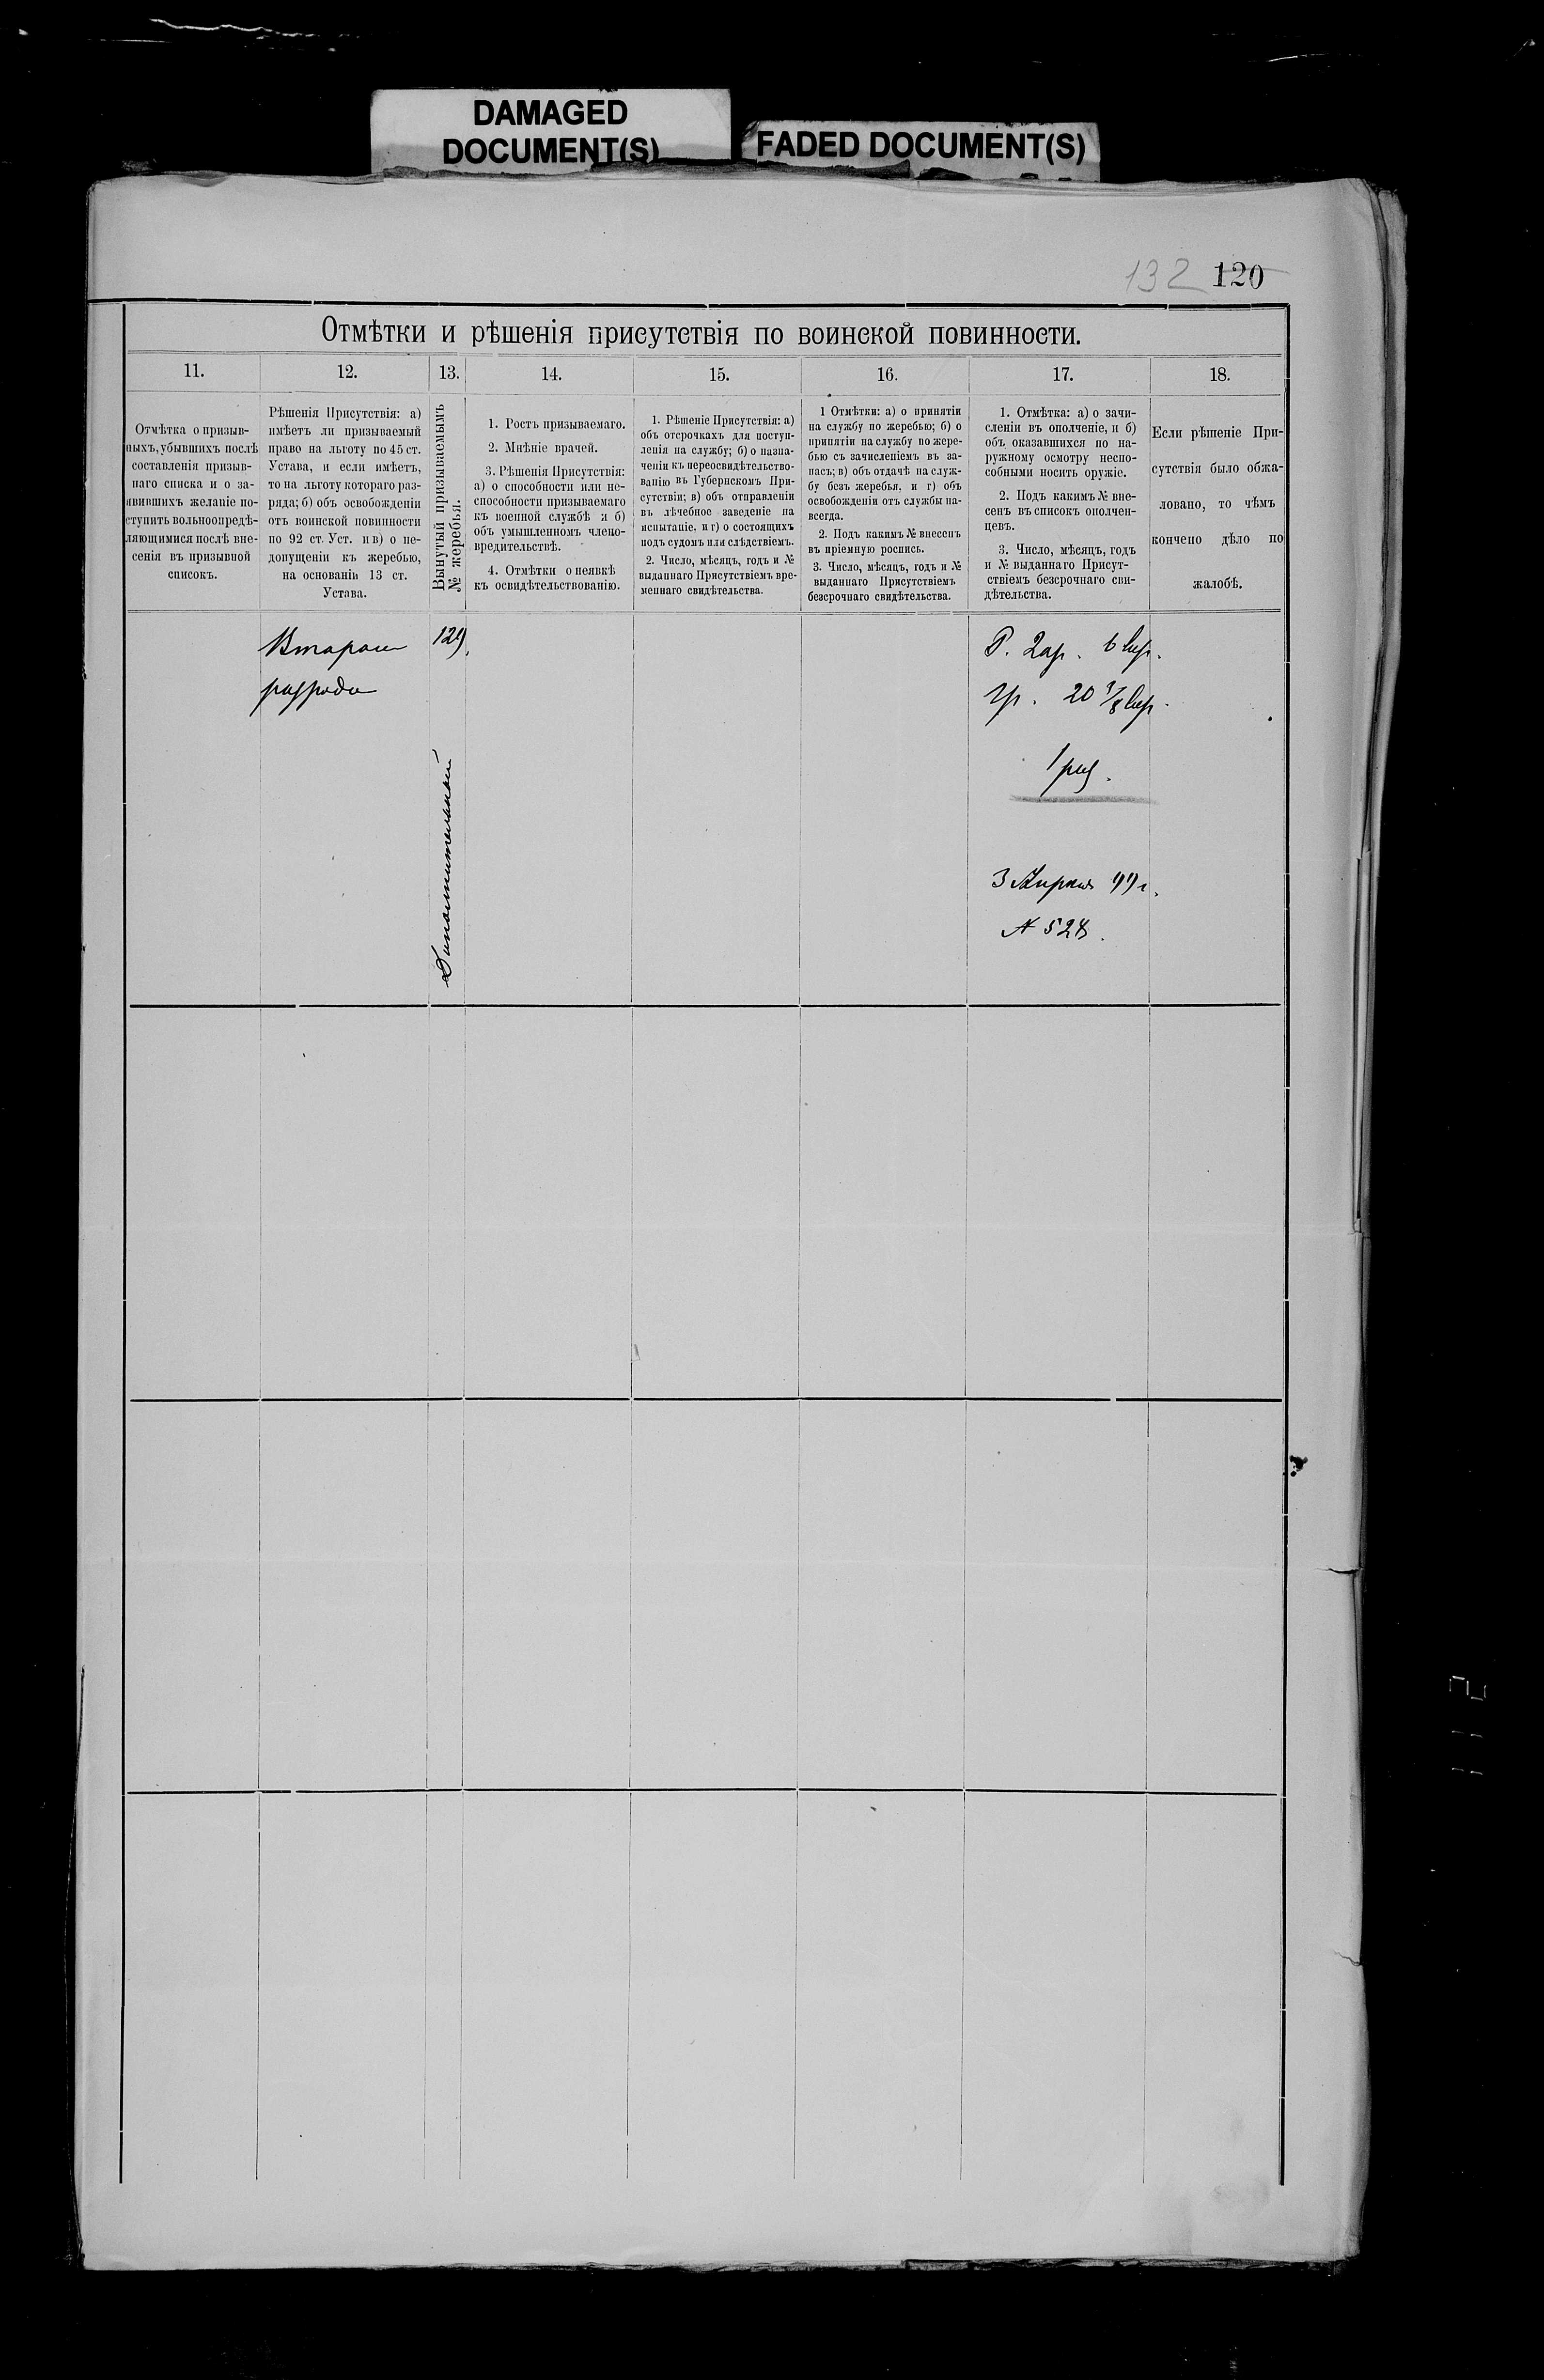 DAMAGED
DOCUMENT(S)
FADED DOCUMENT(S)
132 120
Отмѣтки и рѣшенія присутствія по воинской повинности.
11.
12.
13.
14.
15.
16.
17.
18.
Отмѣтка о призыв-
ныхъ, убывшихъ послѣ
составленія призыв-
наго списка и о за-
явившихъ желаніе по-
ступить вольноопредѣ-
ляющимися послѣ вне-
сенія въ призывной
списокъ.
Рѣшенія Присутствія: а)
имѣетъ ли призываемый
право на льготу по 45 ст.
Устава, и если имѣетъ,
то на льготу котораго раз-
ряда; б) объ освобожденіи
отъ воинской повинности
по 92 ст. Уст. и в) о не-
допущеніи къ жеребью,
на основаніи 13 ст.
Устава.
Вынутый призываемымъ
№ жеребья.
1. Ростъ призываемаго.
2. Мнѣніе врачей.
3. Рѣшенія Присутствія:
а) о способности или не-
способности призываемаго
къ военной службѣ и б)
объ умышленномъ члено-
вредительствѣ.
4. Отмѣтки о неявкѣ
къ освидѣтельствованію.
1. Рѣшеніе Присутствія: а)
объ отсрочкахъ для поступ-
ленія на службу; б) о назна-
ченіи къ переосвидѣтельство-
ванію въ Губернскомъ При-
сутствіи; в) объ отправленіи
въ лѣчебное заведеніе на
испытаніе, и г) о состоящихъ
подъ судомъ или слѣдствіемъ.
2. Число, мѣсяцъ, годъ и №
выданнаго Присутствіемъ вре-
меннаго свидѣтельства.
1 Отмѣтки: а) о принятіи
на службу по жеребью; б) о
принятіи на службу по жере-
бью съ зачисленіемъ въ за-
пасъ; в) объ отдачѣ на служ-
бу безъ жеребья, и г) объ
освобожденіи отъ службы на-
всегда.
2. Подъ какимъ № внесенъ
въ пріемную роспись.
3. Число, мѣсяцъ, годъ и №
выданнаго Присутствіемъ
безсрочнаго свидѣтельства.
1. Отмѣтка: а) о зачи-
сленіи въ ополченіе, и б)
объ оказавшихся по на-
ружному осмотру неспо-
собными носить оружіе.
2. Подъ какимъ № вне-
сенъ въ списокъ ополчен-
цевъ.
3. Число, мѣсяцъ, годъ
и № выданнаго Присут-
ствіемъ безсрочнаго сви-
дѣтельства.
Если рѣшеніе При-
сутствія было обжа-
ловано, то чѣмъ
кончено дѣло по
жалобѣ.
разряда
129
Дополнительный
Р. 2 ар. 6 вер.
гр. 20 7/8 вер.
1 раз.
3 Апрѣля 99 г.
№ 528.